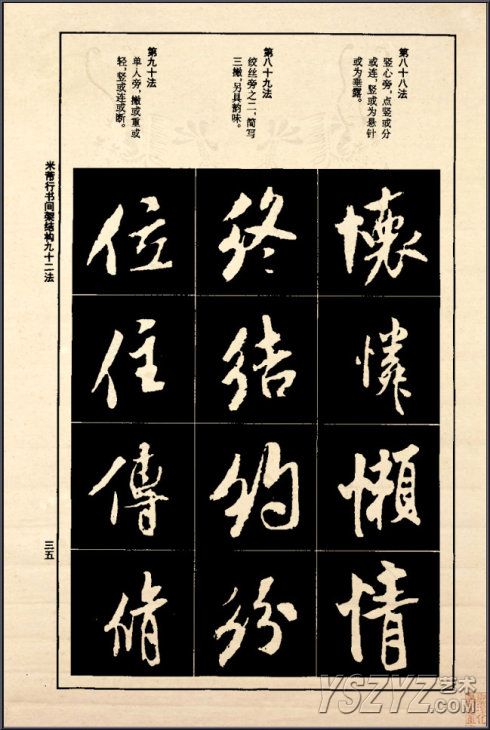 第八十八法
竖心旁，点竖或分
或连，竖或为悬针
或为垂露。
懷
憐
懶
情
第八十九法
绞丝旁之二，简写
三撇，另具韵味。
終
結
約
紛
第九十法
单人旁，撇或重或
轻，竖或连或断。
位
住
傳
脩
米芾行书间架结构九十二法
三五
YSZYZ艺术.COM